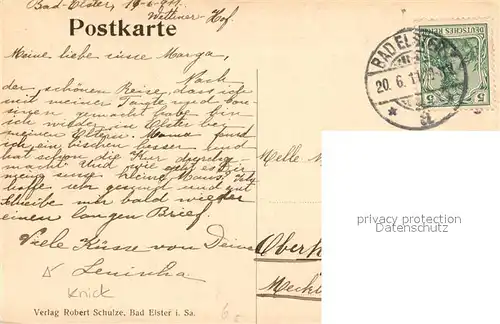 Bad-Elster, 19-6-911.
Wettiner Hof.
Postkarte
Meine liebe süsse Marga,
Nach
der schönen Reise, dass ich
mit meiner Tante und
gemacht habe, bin
ich wieder in Elster bei
meinen Eltern. Mama fand
ich ein bischen besser und
hat schon die Kur
macht. Und wie geht es Dir
meine süsse kleine Maus. Ich
hoffe ihr gesund und gut
schreibe mir bald wieder
einen langen Brief.
Viele Küsse von Deine
Leninha
Knick
Verlag Robert Schulze, Bad Elster i. Sa.
DEUTSCHES REICH
5 5
BAD ELSTER
20. 6. 11
Melle
privacy protection
watermark